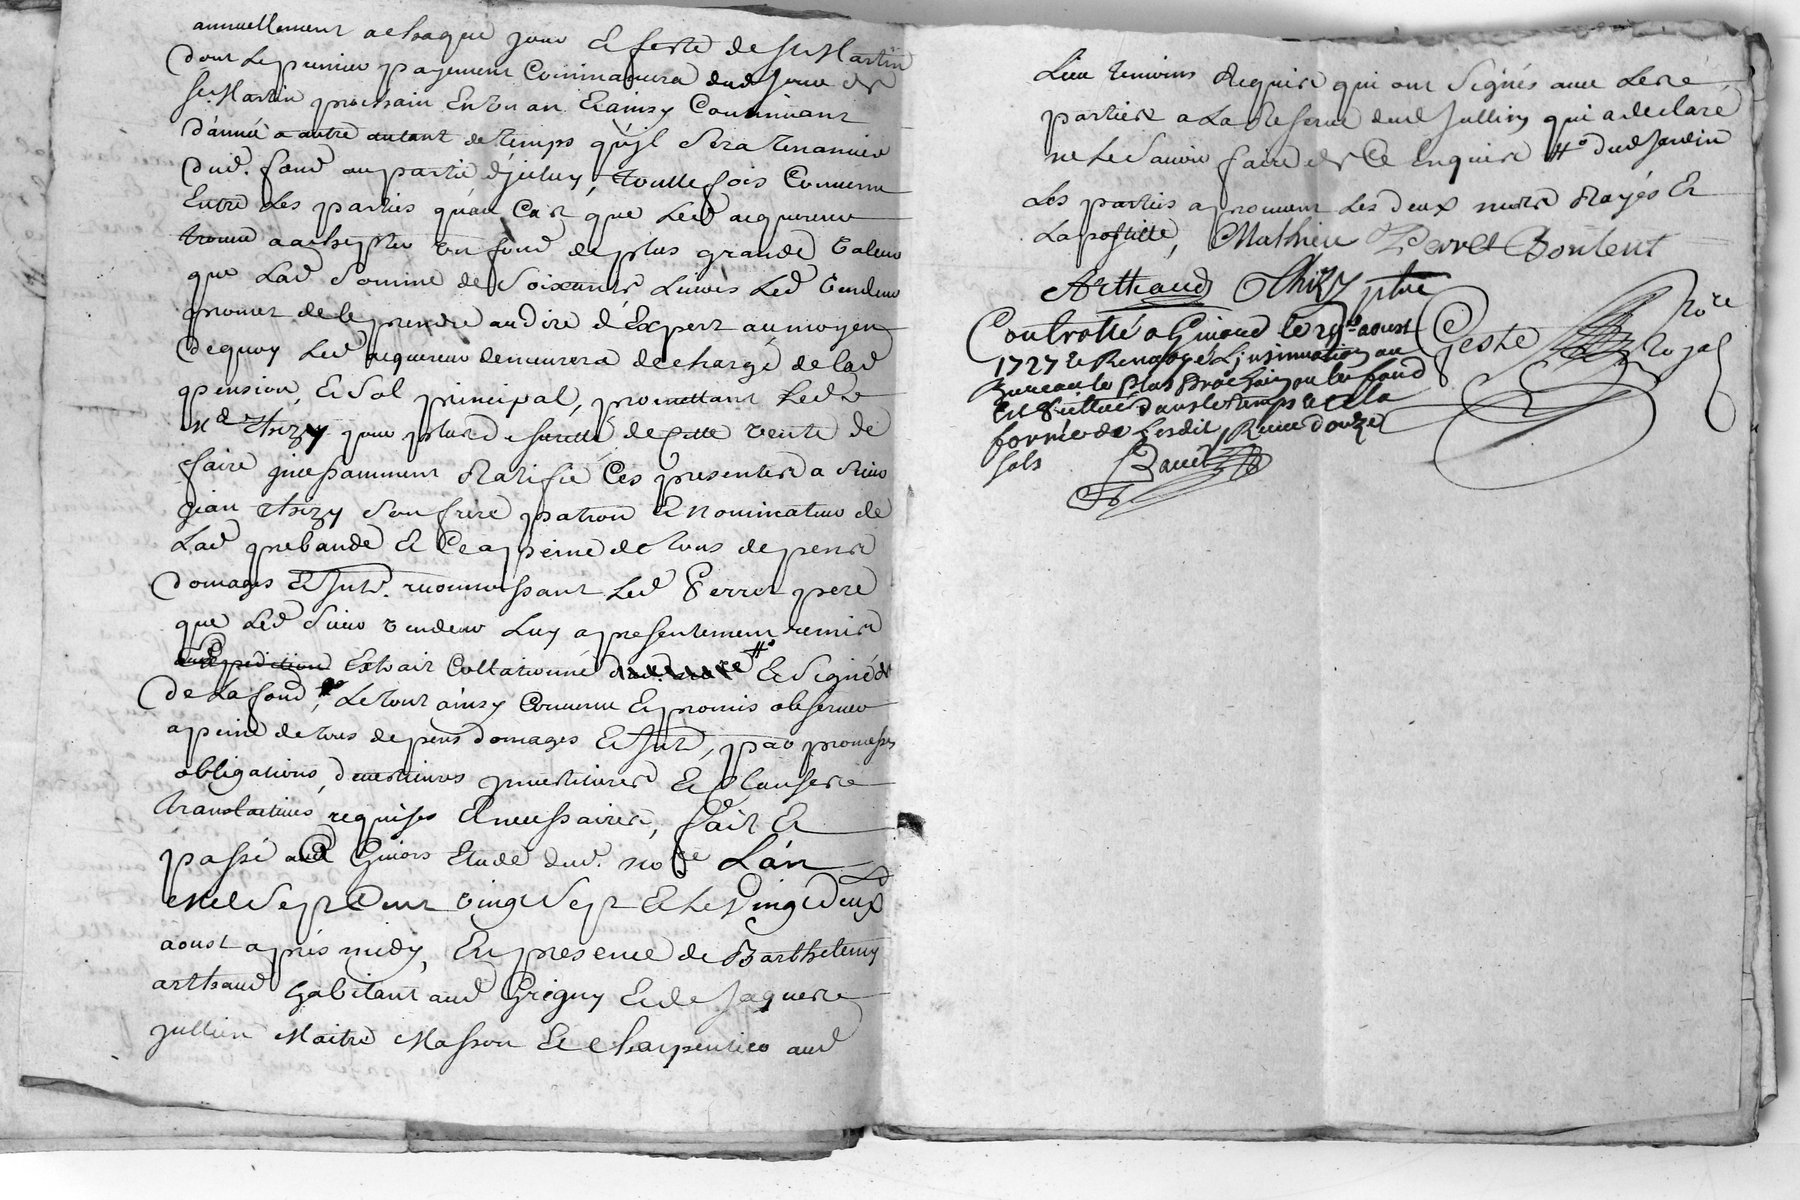 annuellement achaque jour & feste de St Martin
dont le premier payement Commancera dud jour de
St Martin prochain En un an & ainsy Continuant
dannée a autre autant de temps qu'jl sera tenancier
dud. fond ou partie d'jceluy, touttefois Convenu
Entre les parties qu'au Cas que led acquereur
trouve a achepter un fond de plus grande valeur
que lad somme de soixante livres led vendeur
promet de le prendre au dire d'Expert au moyen
de quoy led acquereur demeurera dechargé de lad
pension, & sol principal, promettant led
Thizy pour plus d sureté de Cette vente de
faire jncessamment Ratifié Ces presentes a sieur
jean thizy son frere patron & nominateur de
lad prebande & Ce a peine de tous depens
domages & Int. reconnoissant led Perret pere
que led sieur vendeur luy a presentement remis
Expedition Extrait Collationné & Signé
de la fond, le tout ainsy Convenu & promis observer
a peine de tous depens domages & Int, par promesses
obligations, devestitures jnvestitures & Clauses
translatives requises & necessaires, fait &
passé aud Givors Etude dud. nore L'an
Mil Sept Cent vingt Sept & le Vingt deux
aoust apres midy, En presence de Barthelemy
arthaud habitant aud Grigny & de Jaques
jullien Maitre Masson & Charpentier aud
Lieu temoins Requis qui ont Signés avec les
parties a la Reserve dud Jullien qui a declaré
ne le Savoir faire de Ce Enquis # dud Jardin
les parties aprouvent les deux mots Rayés &
la postille, Mathieu Perret Boulent
Arthaud Thizy ptre
Controllé a Givord le 29 aoust
1727 & Renvoyé L'jnsinuation au
Bureau le plus prochain ou les fond
Est Scittué dans le temps & la
forme de Lesdit, Reçu douze
sols
Geste nore Royal